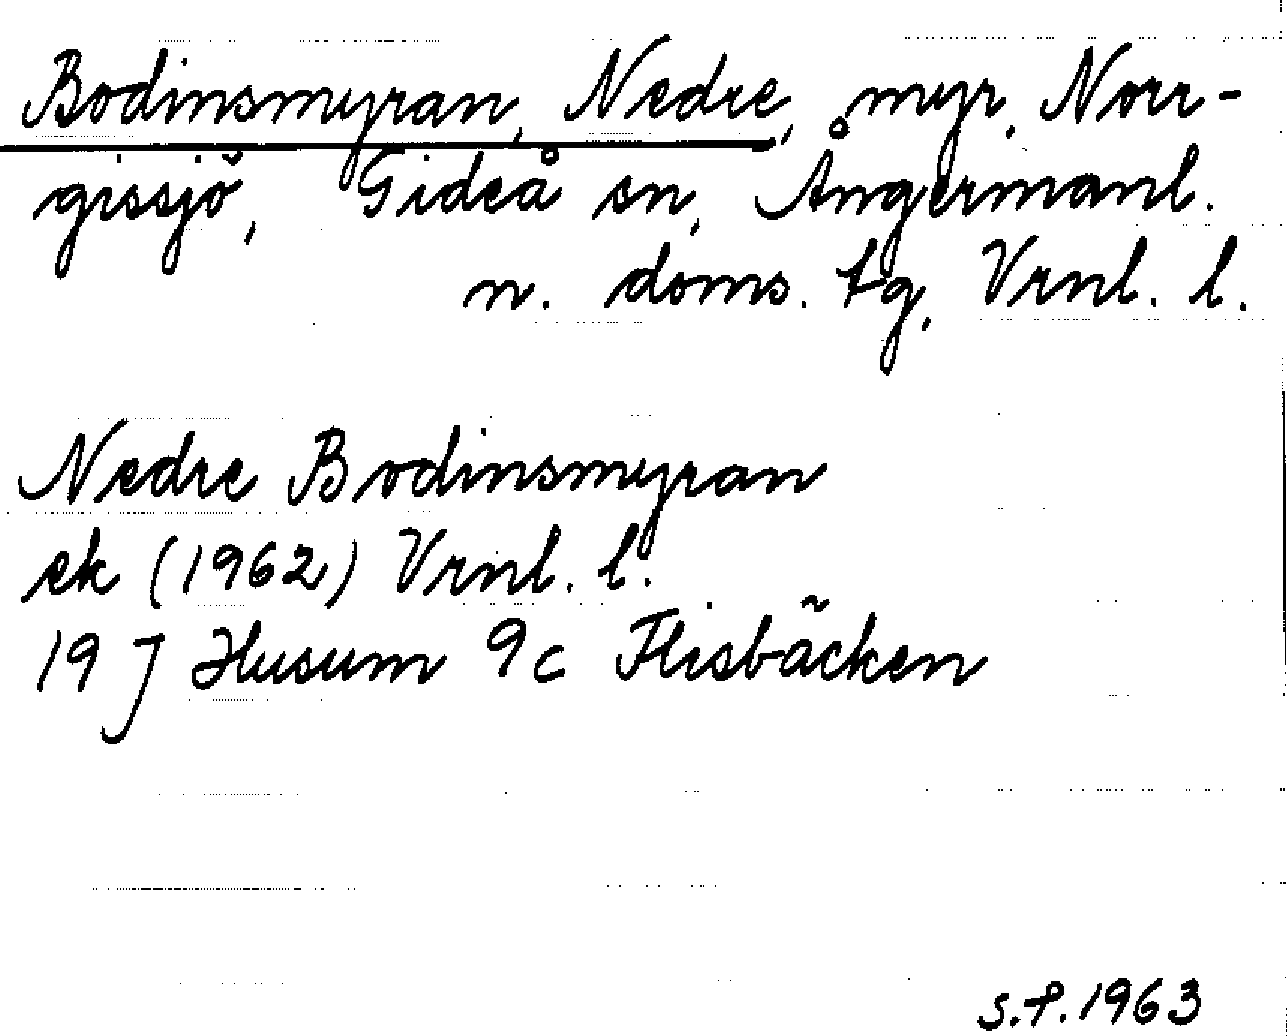 Bodinsmyran, Nedre, myr, Norr-
gissjö, Gideå sn, Ångermanl.
n. doms. tg, Vrnl. l.
Nedre Bodinsmyran
ek (1962) Vrnl. l.
19 J Husum 9c Flisbäcken
S.F. 1963